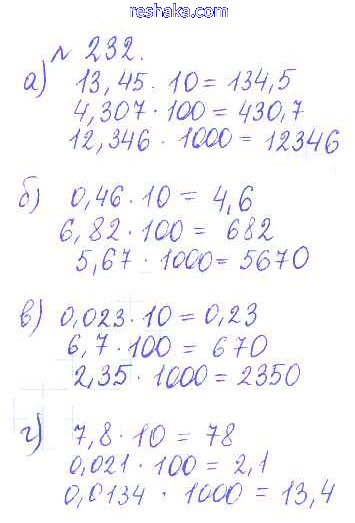 reshaka.com
№ 232.
а) 13,45 · 10 = 134,5
4,307 · 100 = 430,7
12,346 · 1000 = 12346
б) 0,46 · 10 = 4,6
6,82 · 100 = 682
5,67 · 1000 = 5670
в) 0,023 · 10 = 0,23
6,7 · 100 = 670
2,35 · 1000 = 2350
г) 7,8 · 10 = 78
0,021 · 100 = 2,1
0,0134 · 1000 = 13,4